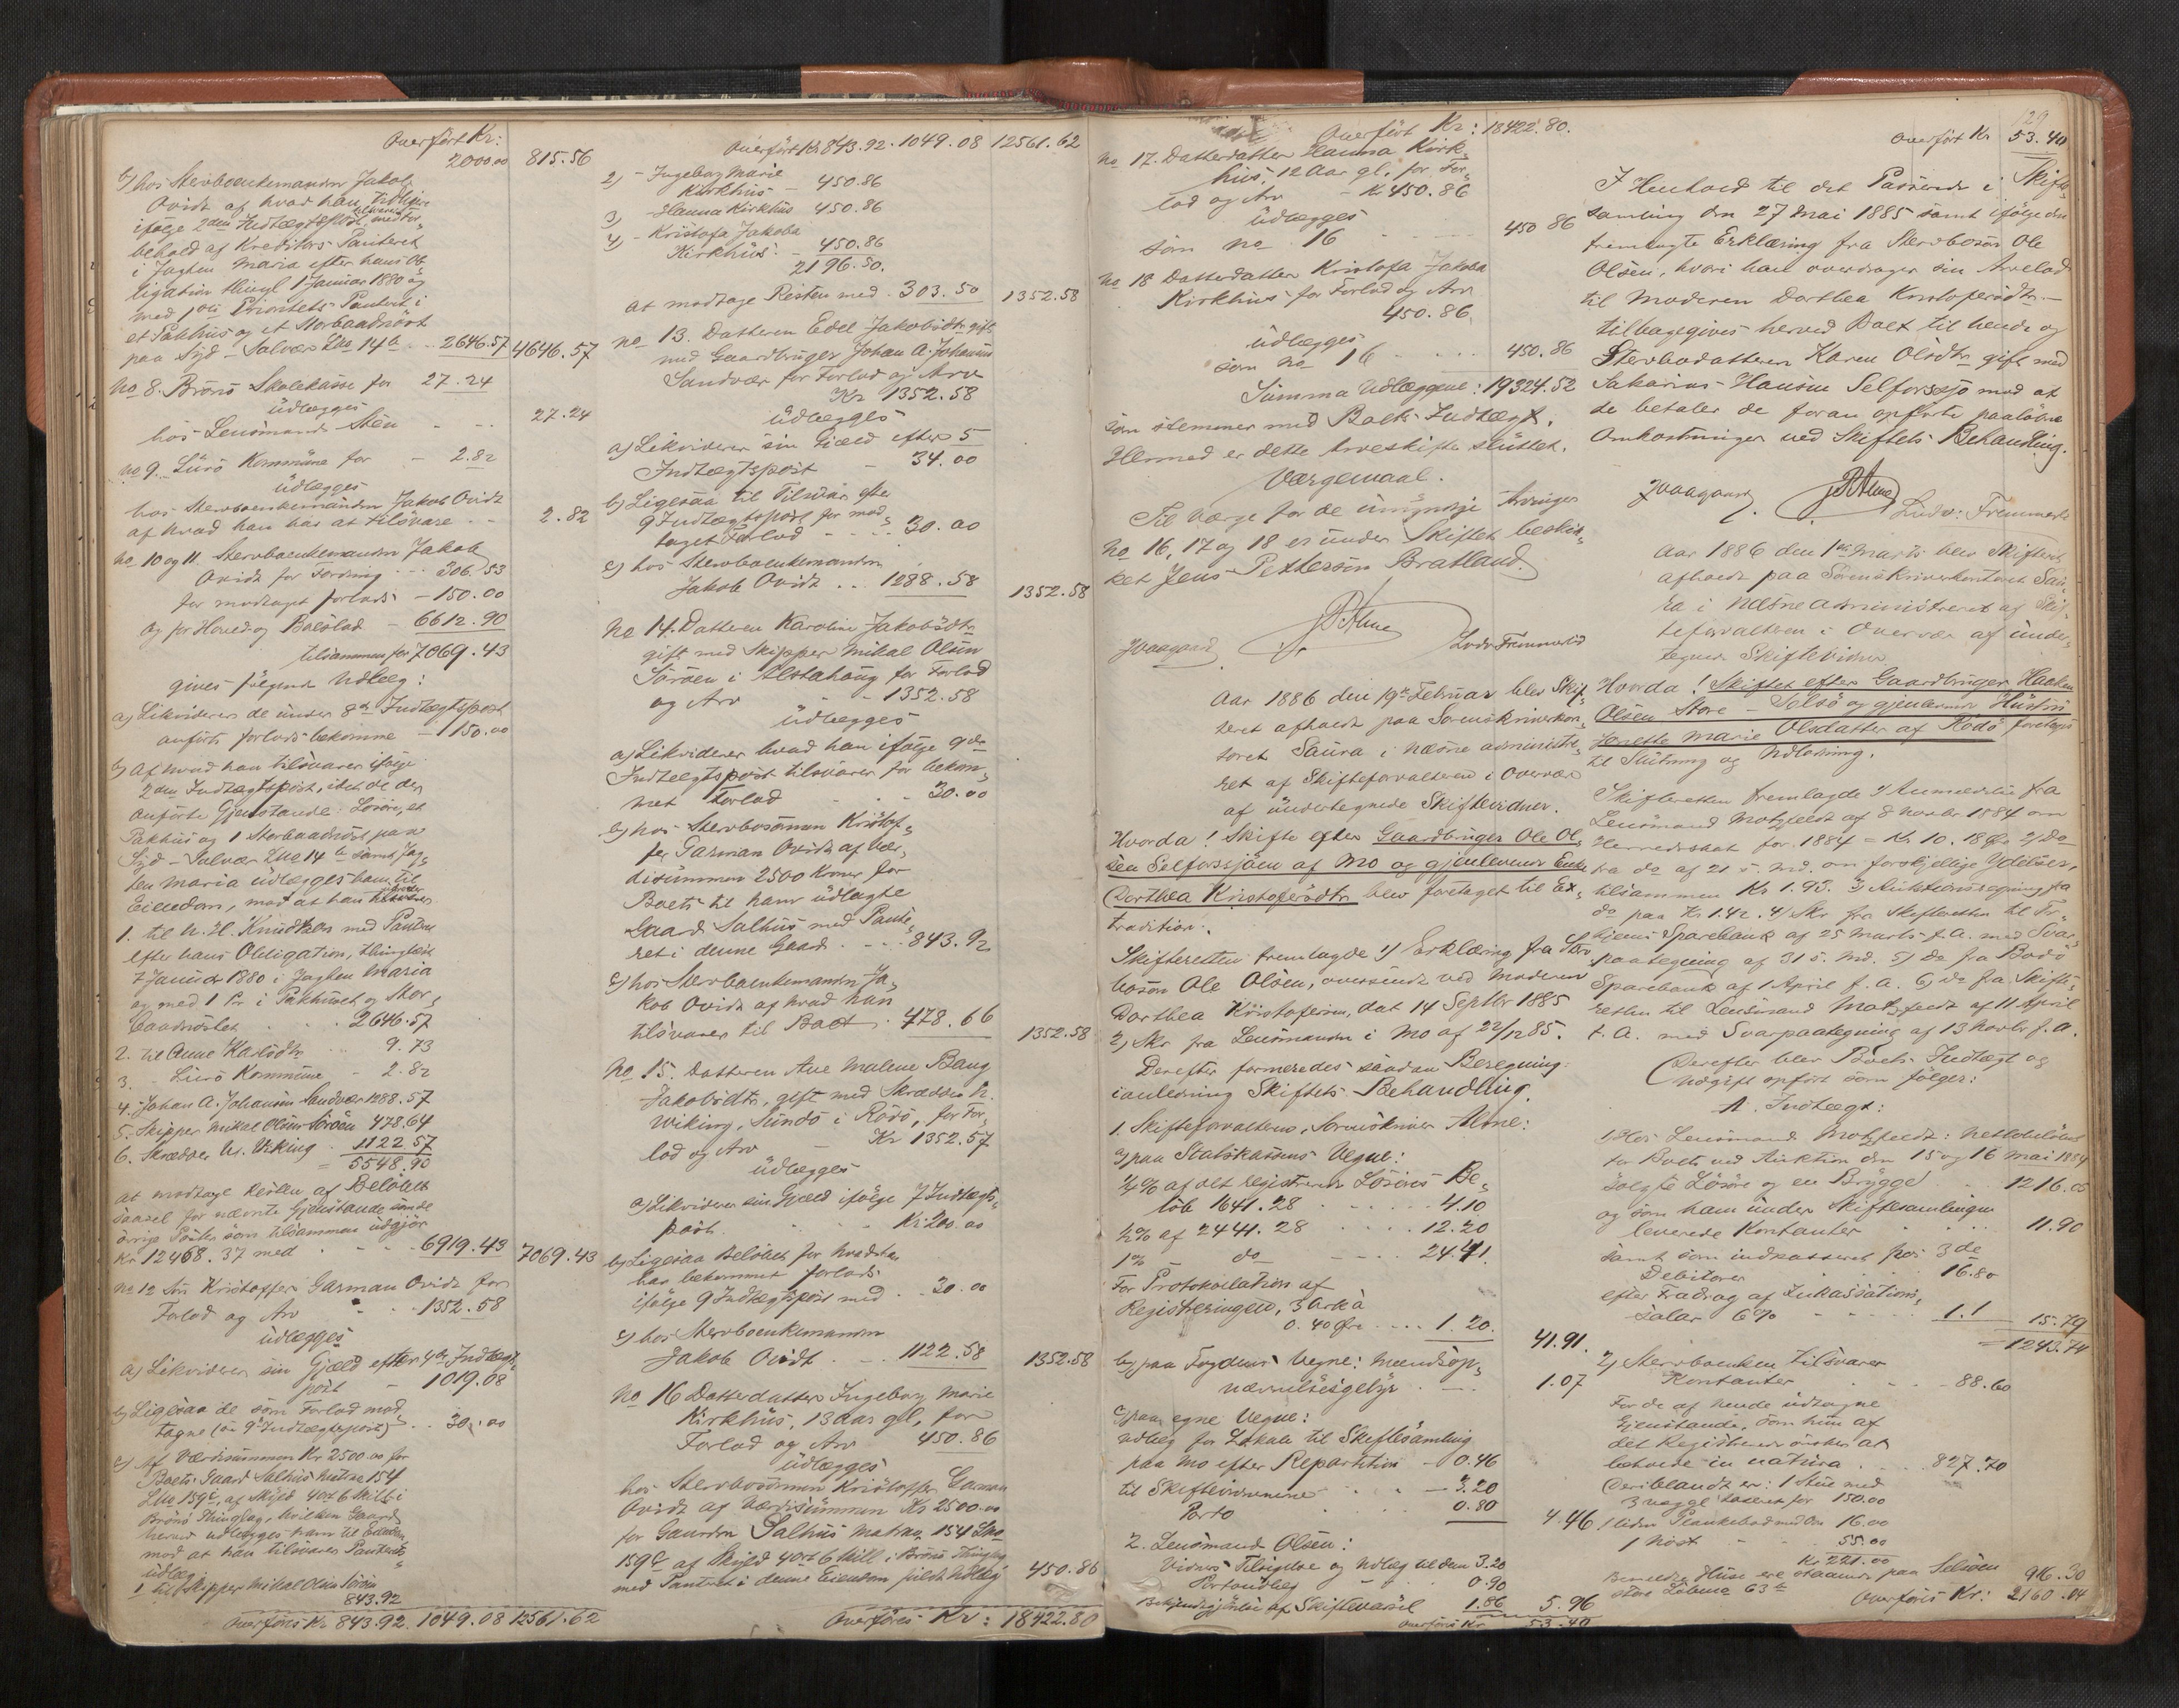 Overført Kr:
2000.00 815.56
b) hos Sterboenkemanden Jakob
Ovidt af hvad han tidligere
ifølge 2den Indtægtspost tilsvarer med For,
behold af Kreditors Panteret
i Jagten Maria efter hans Ob,
ligation thingl 7 Januar 1880 og
med 1ste Prioritets Panteret i
et Pakhus og et Storbaadnöst
paa Syd-Solvær Lno 14b .. 2646.57 4646.57
No 8. Brönö Skolekasse for 27.24
üdlægges
hos Lensmand Steen - -- 27.24
No 9. Lürö Kommüne for - 2.82
üdlægges
hos Sterboenkemanden Jakob Ovidt
af hvad han har at tilsvare - - 2.82
No 10 og 11. Sterboenkemanden Jakob
Ovidt for Fordring --- 306.53
for modtaget forlods - 150.00
og for Hoved og Boeslod - 6612.90
tilsammen for 7069.43
gives følgende Udlæg:
a) Likviderer de ünder 8de Indtægtspost
anförte forlods bekomne - 150.00
b) Af hvad han tilsvarer ifølge
2den Indtægtspost, idet de der
anförte Gjenstande: Lösöre, et
Pakhüs og 1 Storbaadnöst paa
Syd-Solvær Lno 14b samt Jag,
ten Maria üdlægges ham til
Eiendom, mod at han udreder
1. til N. H. Knüdtzon med Panteret
efter hans Obligation, thinglæst
7 Januar 1880 i Jagten Maria
og med 1 Pr i Pakhüset og Stor,
baadnöstet . . . 2646.57
2. til Anne Karlsdtr .. 9.73
3. - Lürö Kommüne - 2.82
4. - Johan A. Johansen Sandvær 1288.57
5. Skipper Mikal Olsen Söröen 478.64
6. Skrædder N. Viking . 1122.57
= 5548.90
at modtage Resten af Belöbet
saavel for nævnte Gjenstande som de
övrige Poster som tilsammen üdgjör
Kr 12468.37 med . . . 6919.43 7069.43
No 12 Sön Kristoffer Garman Ovidt for
Forlod og Arv . . . 1352.58
üdlægges
a) Likviderer sin Gjæld efter 4de Indtægts,
post - 1019.08
b) Ligesaa de som Forlod mod,
tagne (se 9de Indtægtspost) . . 30.00
c) Af Værdisummen Kr 2500.00 for
Boets Gaard Salhüs Matrno 154
Lno 159c, af Skyld 4 ort 6 Skill i
Brönö Thinglag, hvilken Gaard
herved üdlægges ham til Eiendom
mod at han tilsvarer Panterets
üdlæg
1 til Skipper Mikal Olsen Söröen
843.92
Overføres Kr 843.92. 1049.08 12561.62
Overført Kr 843.92. 1049.08 12561.62
2) - Ingeborg Marie
Kirkhüs - 450.86
3) - Hanna Kirkhüs 450.86
4) - Kristofa Jakoba
Kirkhüs - 450.86
2196.50.
at modtage Resten med . 303.50 1352.58
No 13. Datteren Edel Jakobsdtr gift
med Gaardbrüger Johan A. Johansen
Sandvær for Forlod og Arv
Kr 1352.58
üdlægges
a) Likviderer sin Gjæld efter 5
Indtægtspost - 34.00
b) Ligesaa til Tilsvar efter
9 Indtægtspost for mod,
taget Forlod - - - - 30.00
c) hos Sterboenkemanden
Jakob Ovidt . . 1288.58 1352.58
No 14. Datteren Karoline Jakobsdtr
gift med Skipper Mikal Olsen
Söröen i Alstahoug for Forlod
og Arv - - 1352.58
üdlægges
a) Likviderer hvad han ifølge 9de
Indtægtspost tilsvarer for bekom,
met Forlod . . 30.00
b) hos Sterbosönnen Kristof,
fer Garman Ovidt af Vær,
disummen 2500 Kroner for
Boets til ham üdlagte
Gaard Salhüs med Pante,
ret i denne Gaard . - - 843.92
c) hos Sterboenkemanden Ja,
kob Ovidt af hvad han
tilsvarer til Boet . 478.66 1352.58
No 15. Datteren Ane Malene Bang
Jakobsdtr, gift med Skrædder N.
Wiking, Sündö i Rödö, for For,
lod og Arv - Kr 1352.57
üdlægges
a) Likviderer sin Gjæld ifølge 7 Indtægts,
post . . . Kr 200.00
b) Ligesaa Belöbet for hvad han
har bekommet forlods
ifølge 9 Indtægtspost med . . 30.00
c) hos Sterboenkemanden
Jakob Ovidt . - . 1122.58 1352.58
No 16 Datterdatter Ingeborg Marie
Kirkhüs, 13 Aar gl, for
Forlod og Arv 450.86
üdlægges
hos Sterbosönnen Kristoffer Garman
Ovidt af Værdisümmen Kr 2500.00
for Gaarden Salhüs Matrno 154 Lno
159c af Skyld 4 ort 6 Skill i Brönö Thinglag
med Panteret i denne Eiendom fuldt Udlæg 450.86
Overføres Kr: 18422.80
Overført Kr: 18422.80.
No 17. Datterdatter Hanna Kirk,
hüs, 12 Aar gl, for For,
lod og Arv - Kr 450.86
üdlægges
som No 16 . - - - 450 86
No 18 Datterdatter Kristofa Jakoba
Kirkhüs for Forlod og Arv
450.86.
üdlægges
som No 16 - . . . . 450.86
Sümma Udlæggene: 19324.52
som stemmer med Boets Indtægt.
Hermed er dette Arveskifte slüttet.
Værgemaal.
Til Værge for de ümyndige Arvinger
No 16, 17 og 18 er ünder Skiftet beskik,
ket Jens Pettersen Bratland.
JVaagaard Alme Ludv. Fremmerlid
Aar 1886 den 19de Februar blev Skif,
teret afholdt paa Sorenskriverkon,
toret Saura i Næsne administre,
ret af Skifteforvalteren i Overvær
af ündertegnede Skiftevidner.
Hvorda! Skifte efter Gaardbrüger Ole Ol,
sen Selforssjöen af Mo og gjenlevende Enke
Dorthea Kristofersdtr blev foretaget til Ex,
tradition.
Skifteretten fremlagde 1) Erklæring fra Ster
bosön Ole Olsen, oversendt ved Moderen
Dorthea Kristofersen, dat 14 Septbr 1885
2) Skr fra Lensmanden i Mo af 22/12 85.
Derefter formeredes saadan Beregning
i anledning Skiftets Behandling.
1. Skifteforvalteren, Sorenskriver Alme:
a) paa Statskassens Vegne:
1/4% af det registrerede Lösöres Be,
löb 1641.28 . . . . . . 4.10
1/2% af 2441.28 . . . . . 12.20
1% - do - - - - 24.41.
For Protokollation af
Registreringen, 3 Ark à
0.40 Øre . . . . 1.20. 41.91.
b) paa Fogdens Vegne: Meendsop,
nævnelsesgebyr . - . 1.07
c) paa egne Vegne:
Udlæg for Lokale til Skiftesamling
paa Mo efter Repartition - 0.46
til Skiftevidnerne . . - 3.20
Porto . . 0.80 4.46
2. Lensmand Olsen:
Vidners Tilsigelse og Udlæg til dem 3.20
Portoudlæg . . 0.90
Bekjendtgjörelse af Skiftevarsel 1.86 5.96
Overføres Kr 53.40
129
Overført Kr 53.40
I Henhold til det Passerede i Skifte,
samling den 27 Mai 1885 samt ifølge den
fremlagte Erklæring fra Sterbosön Ole
Olsen, hvori han overdrager sin Arvelod
til Moderen Dorthea Kristofersdtr -
tilbagegives herved Boet til hende og
Sterbodatteren Karen Olsdtr gift med
Sakarias Hansen Selforssjö mod at
de betaler de foran opförte paalöbne
Omkostninger ved Skiftets Behandling.
JVaagaard Alme Ludv. Fremmerli
Aar 1886 den 1ste Marts blev Skifteret
afholdt paa Sorenskriverkontoret Sau,
ra i Næsne administreret af Skif,
teforvalteren i Overvær af ünder,
tegnede Skiftevidner
Hvorda! Skiftet efter Gaardbrüger Haaken
Olsen Store-Selsö og gjenlevende Hüstru
Henrette Marie Olsdatter af Rödö foretages
til Slütning og Udlodning.
Skifteretten fremlagde 1) Anmeldelse fra
Lensmand Motzfeldt af 8 Novbr 1884 om
Herredsskat for 1884 = Kr 10.18 Øre 2) Do
fra do af 21 s. Md. om forskjellige Ydelser,
tilsammen Kr 1.93. 3) Auktionsregning fra
do paa Kr 1.42. 4) Skr fra Skifteretten til Tr,
hjems Sparebank af 25 Marts f.A. med Svar,
paategning af 31 s. Md. 5) Do fra Bodö
Sparebank af 1 April f.A. 6) do fra Skifte,
retten til Lensmand Motzfeldt af 11 April
f.A. med Svarpaategning af 13 Novbr f.A.
Derefter blev Boets Indtægt og
Udgift opført som følger:
A. Indtægt:
1) Hos Lensmand Motzfeldt: Nettobelöbet
for Boets ved Auktion den 15 og 16 Mai 1884
solgte Lösöre og en Brygge . . 1216.05
og som ham ünder Skiftesamlingen
leverede Kontanter . . . 11.90
samt som indkasseret hos 3de
Debitorer . . . . 16.80
efter Fradrag af Inkassations,
salær 6% - - - - 1.1 15.79
= 1243.74
2) Sterboenken tilsvarer
Kontanter . . . . 88.60
For de af hende üdtagne
Gjenstande, som hün af
det Registrerede önsker at
beholde in natura . . . . 827.70
Deriblandt er: 1 Stue med
3 vægge taxeret for 150.00
1 liden Plankebod med Ovn 16.00
1 Nöst - - 55.00
Kr 221.00
Bemeldte Hüse ere staaende paa Selsöen
store Löbeno 63a 916.30
Overføres Kr: 2160.04